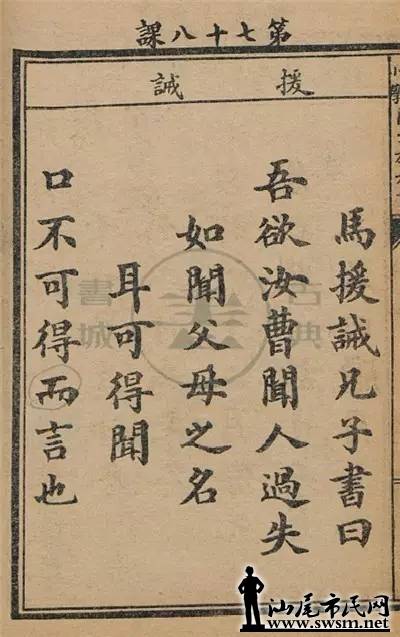 第七十八課
援誡
馬援誡兄子書曰
吾欲汝曹聞人過失
如聞父母之名
耳可得聞
口不可得而言也
古典書城
汕尾市民网
www.swsm.net